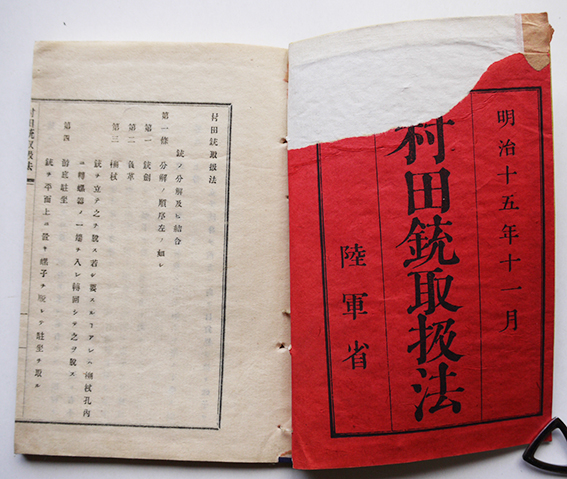 明治十五年十一月
村田銃取扱法
陸軍省
村田銃取扱法
銃ノ分解及ヒ結合
第一條 分解ノ順序左ノ如シ
第一 銃劍
第二 負革
第三 槊杖
銃ヲ立テ之ヲ脱ス若シ要スルトキハ槊杖孔内
ニ轉螺器ノ一端ヲ入レ轉回シテ之ヲ脱ス
第四 遊底駐坐
銃ヲ平面上ニ置キ螺子ヲ脱シテ駐坐ヲ取ル
村田銃取扱法